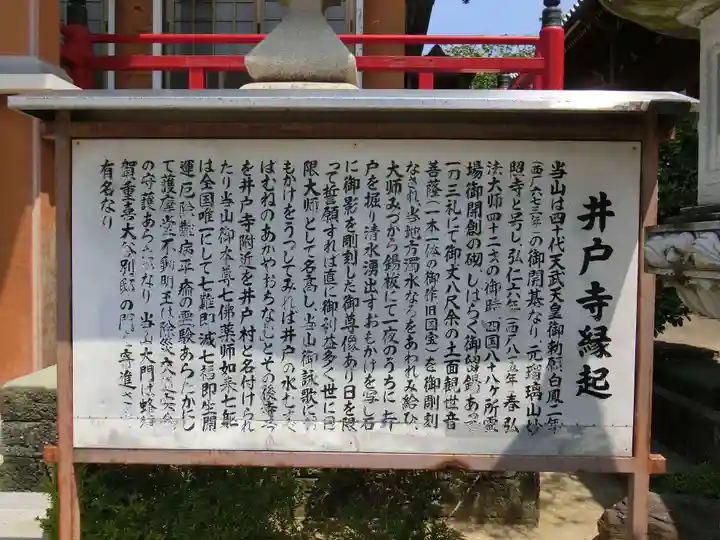 井戸寺縁起
当山は四十代天武天皇御勅願白鳳二年
(西六七三年)の御開基なり元瑠璃山妙
照寺と号し弘仁六年(西八一五年)春弘
法大師四十二才の御時四国八十八ヶ所霊
場御開創の砌しばらく御留錫あって
一刀三礼にて御丈八尺余の十一面観世音
菩薩(一木一体の御作旧国宝)を御彫刻
なされ当地方濁水なるをあわれみ給ひ
大師みづから錫杖にて一夜のうちに井
戸を掘り清水湧出すおもかげを写し石
に御影を彫刻した御尊像あり日を限
って誓願すれば直に御利益多く世に日
限大師として名高し当山御詠歌に
もかげをうつしてみれば井戸の水むすべ
ばむねのあかやおちなむとその後寺
を井戸寺附近を井戸村と名付けられ
たり当山御本尊七佛薬師如来七躯
は全国唯一にして七難即滅七福即生開
運厄除難病平癒の霊験あらたかにし
て護摩堂不動明王は除災
の守護あらたなり当山大門は蜂須
賀重喜大谷別邸の門を寄進され
有名なり